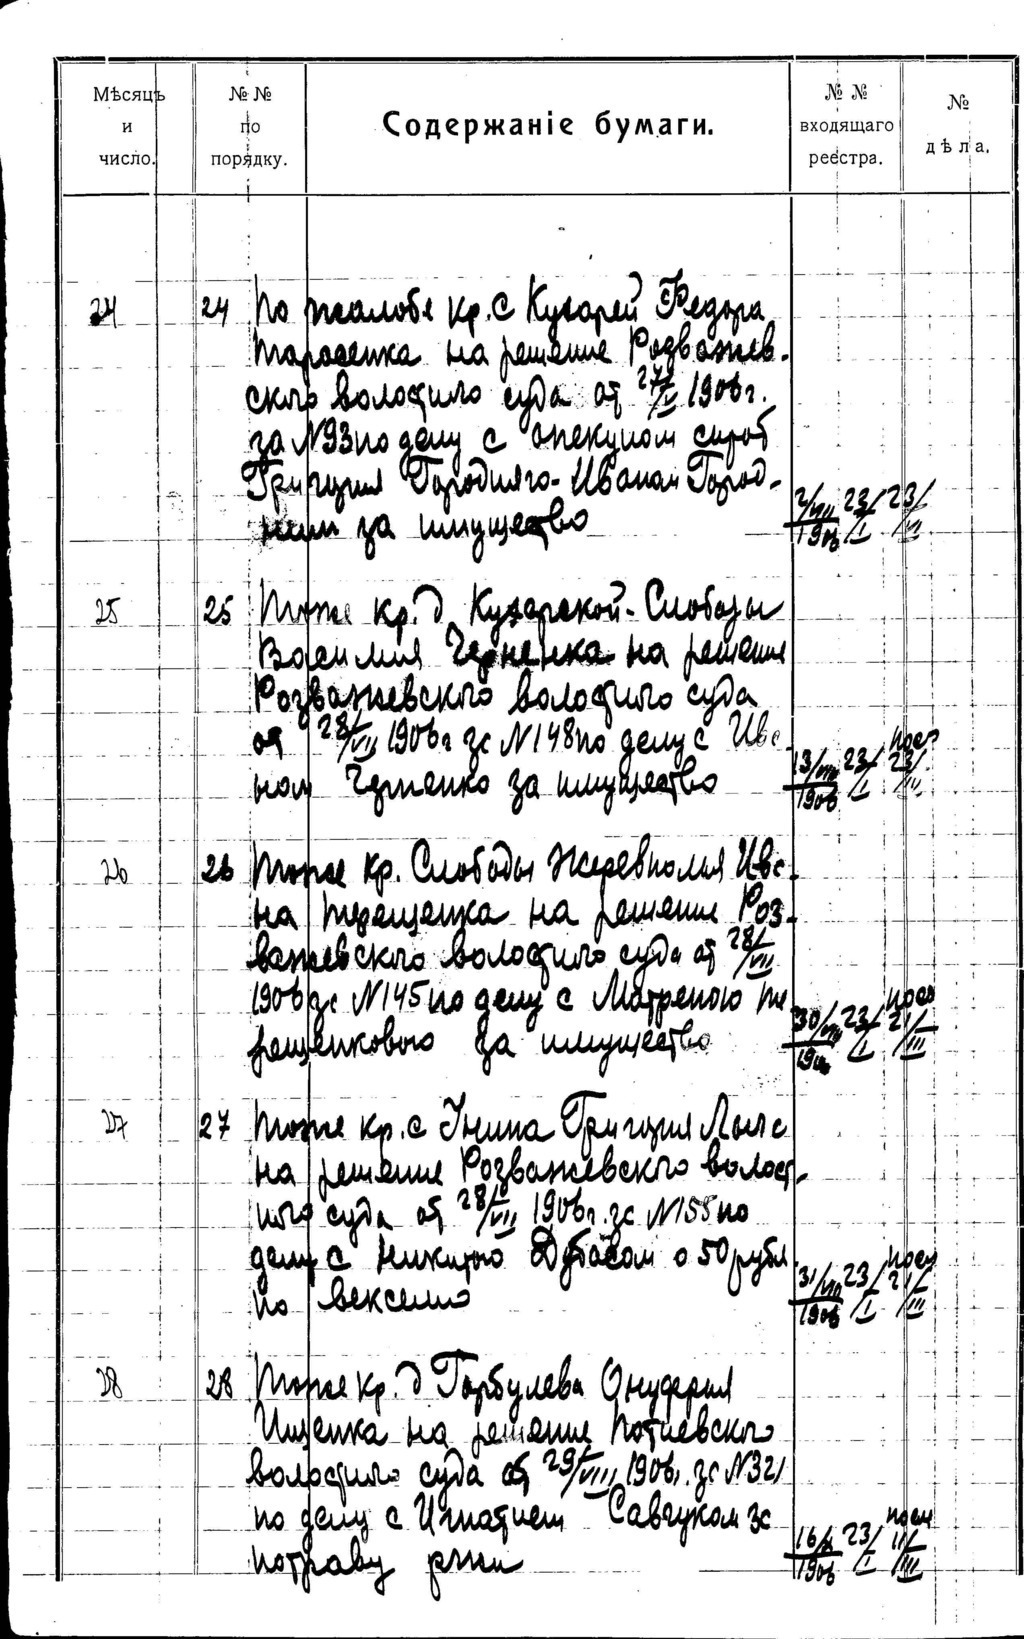 Мѣсяцъ
и
число.
№ №
по
порядку.
Содержаніе бумаги.
№ №
входящаго
реестра.
№
дѣла.
24 24 По жалобе кр. с Кухарей Федора
Тарасенка на решение Розважев-
ского волостного суда от 27/I 1906 г.
за №93 по делу с опекуном сирот
Григория Городняго - Иваном Город-
ним за имущество
2/VIII 1906 23/I 23/VI
25 25 Тоже кр. д Кухарской-Слободы
Василия на решение
Розважевского волостного суда
от 28/VII 1906 г за №148 по делу с Ива
ном за имущество
13/VIII 1906 23/I посл 23/III
26 26 Тоже кр. Слободы Жеревполья Ива-
на Терещенка на решение Роз-
важевского волостного суда от 28/VII
1906 за №145 по делу с Матреною Те
рещенковою за имущество
30/VIII 1906 23/I посл 21/III
27 27 Тоже кр. с Унина Григория
на решение Розважевского волост-
ного суда от 28/VII 1906 г. за №155 по
делу с Никитою о 50 рубл.
по векселю
31/VIII 1906 23/I посл 21/III
28 28 Тоже кр. д Горбулева Онуфрия
Ищенка на решение Потиевского
волостного суда от 29/VIII 1906 г. за №321
по делу с Игнатием Савчуком за
потраву ржи
16/X 1906 23/I посл 11/III